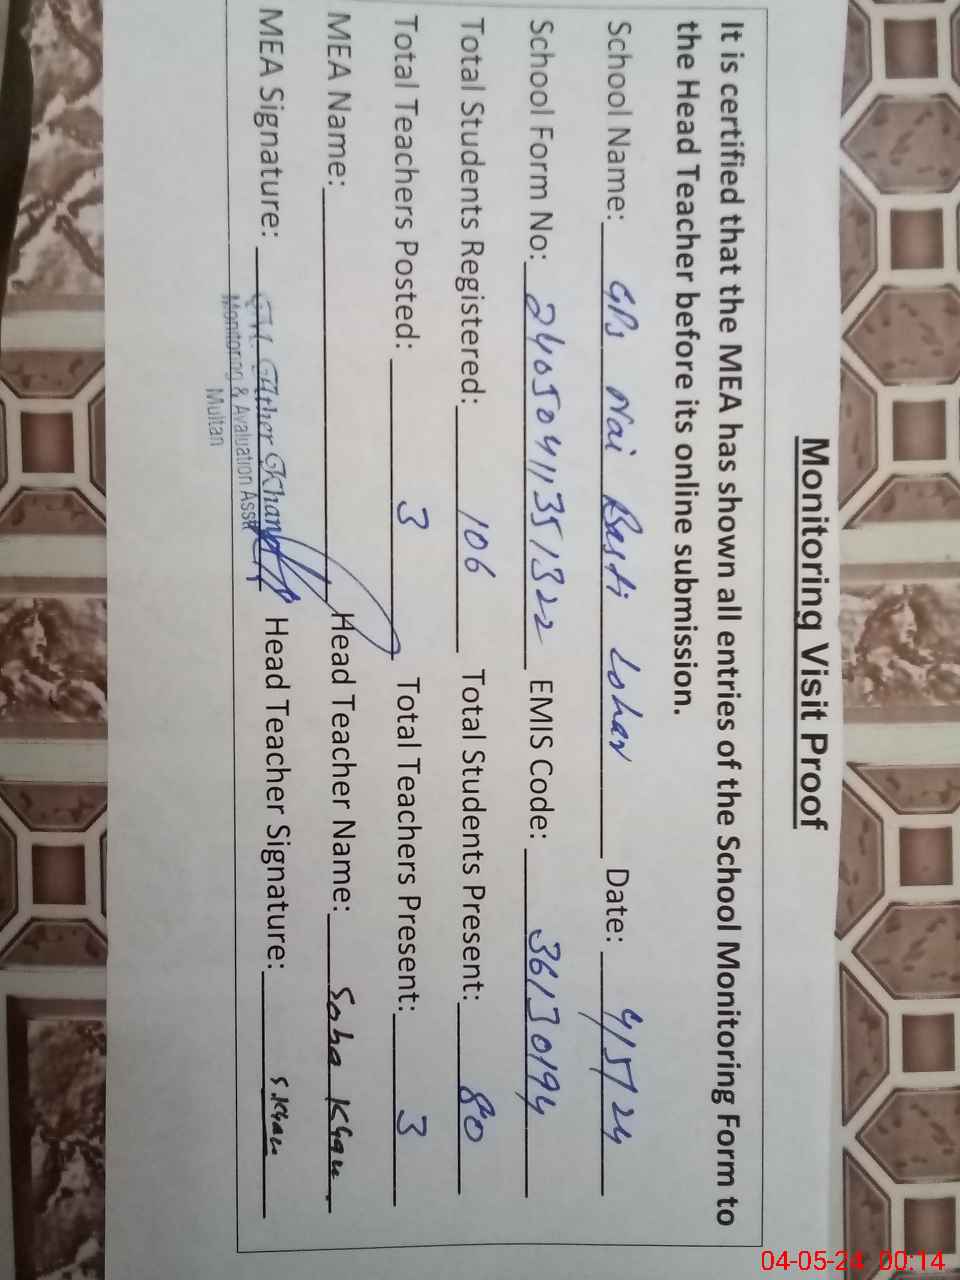 Monitoring Visit Proof
It is certified that the MEA has shown all entries of the School Monitoring Form to
the Head Teacher before its online submission.
School Name: GPS Nai Basti Lohar Date: 4/5/24
School Form No: 24050411351322 EMIS Code: 36130194
Total Students Registered: 106 Total Students Present: 80
Total Teachers Posted: 3 Total Teachers Present: 3
MEA Name: Head Teacher Name: Soha Khan
MEA Signature: Head Teacher Signature: S.Khan
Ather Khan
Monitoring & Avaluation Asstt
Multan
04-05-24 00:14